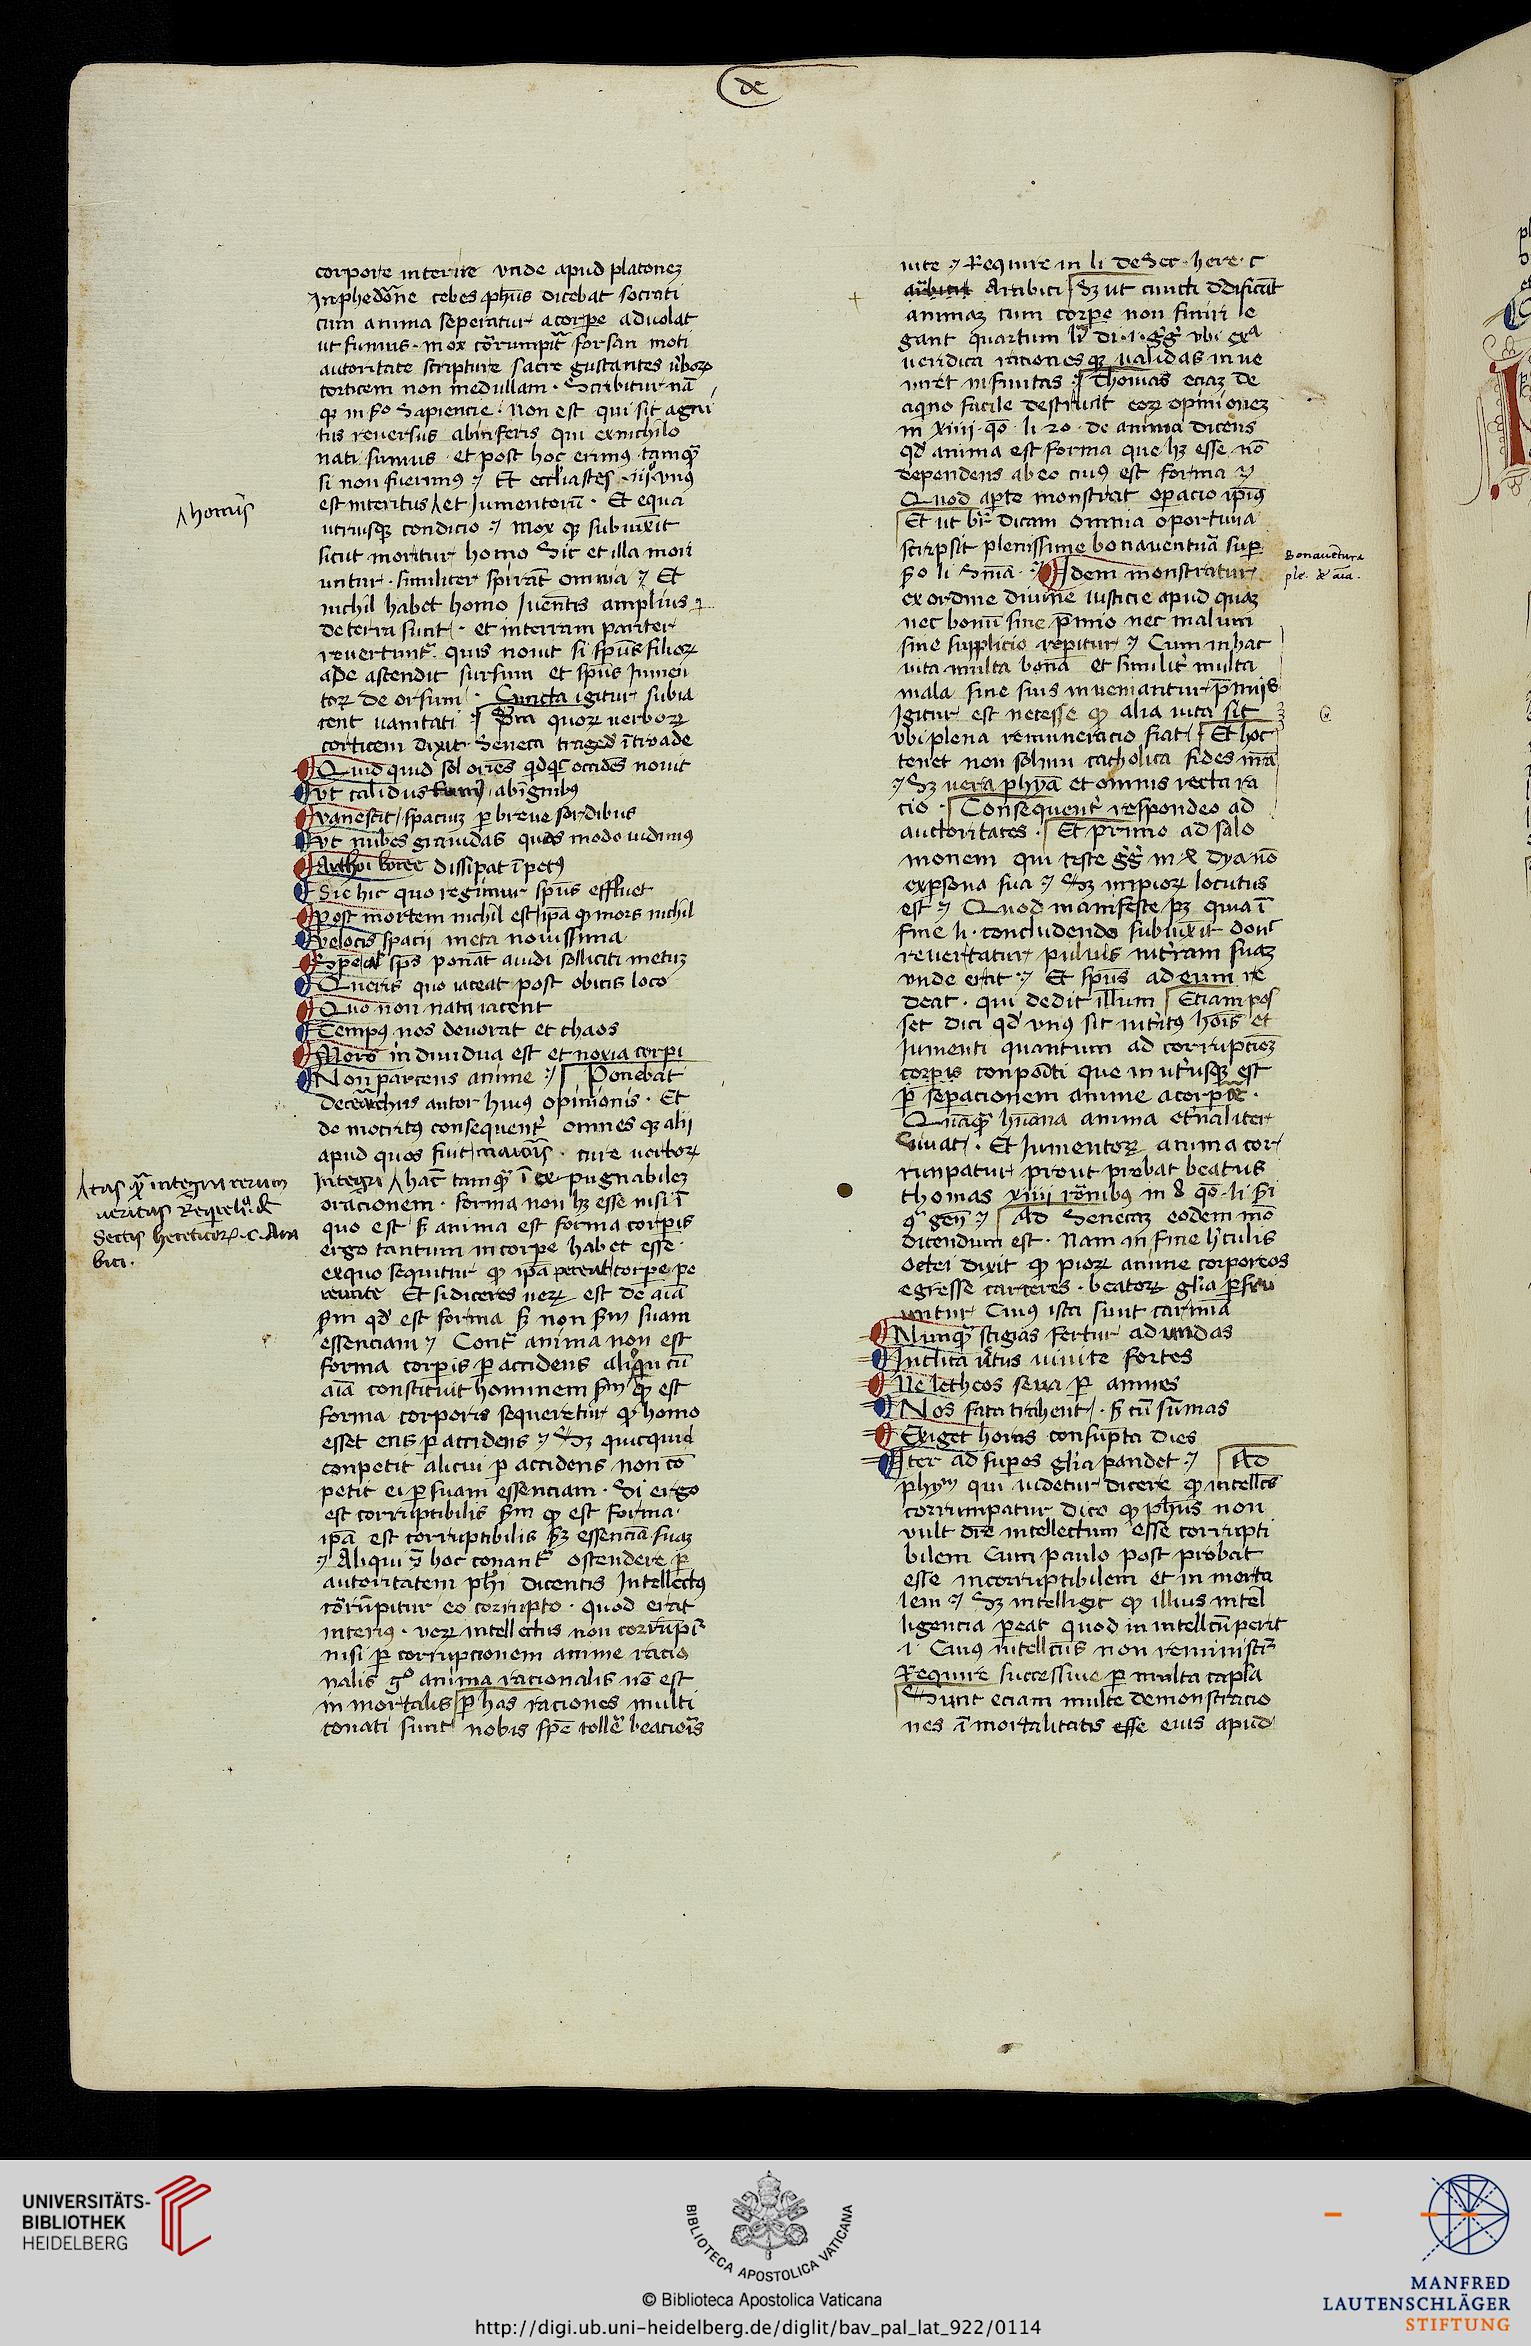 de
corpore interire vnde apud platonez
Jnphedōne cebes ph̄us dicebat socrati
cum anima seperatur acorpe aduolat
ut fumus · mox cōrumpit᷑ forsan moti
autoritate scripture sacre gustantes v̄boꝝ
corticem non medullam · Scribitur nā
qꝫ in so Sapiencie · Non est qui sit agni
tus reuersus abinferis qui exnichilo
nati sumus · et post hoc erimus tamqᷓ
si non fuerimus ⁊ Et eccl̄iastes vnꝰ
est interitus ʌ et Jumentorū · Et equa
ʌ hominis
utriusqꝫ condicio ⁊ mox qꝫ subiuxit
sicut moritur homo Sic et illa mori
untur · similiter spirāt omnia ⁊ Et
nichil habet homo Jumentis amplius
deterra sunt · et interram pariter
reuertunt᷑ quis nouit si sp̄us filioꝝ
ade ascendit sursum et sp̄us Jumen
toꝝ deorsum · Cuncta igitur subia
cent uanitati quoꝝ uerboꝝ
corticem dixit Seneca traged ītroade
Quid quid sol oriēs qͥdqͥd occidēs nouit
vt calidus fumꝰ abignibꝰ
vanescit spaciuꝫ ꝑ breue sordibus
vt nubes grauidas quas modo uidimꝰ
Arthoi boree dissipat īpetꝰ
Sic hic quo regimur sp̄us effluet
Post mortem nichil est ip̄a qꝫ mors nichil
velocis spacii meta nouissima
Spem ponāt auidi solliciti metuꝫ
Queris quo iaceat post obitū loco
Quo non nata iacent
Tempꝰ nos deuorat et chaos
Mors indiuidua est et noxia corpi
Non parcens anime ⁊ Ponebat
dicearchus autor huiꝰ opinionis · Et
democritꝰ consequent᷑ omnes qꝫ alij
apud quos fuit maioris cure uerboꝝ
Jntegri ʌ hāc tamqᷓ īexpugnabileꝫ
ʌ tas qᷓ integra rerum
veritas Requirelꝰ de
Sectis hereticoꝝ · c · Ara
bici ·
oracionem · forma non hꝫ esse nisi ī
quo est sꝫ anima est forma corpis
ergo tantum incorpe habet esse
exquo sequitur qꝫ ip̄a pereat corpe pe
reunte Et sidiceres ueꝝ est de aīa
sm̄ qd̄ est forma sꝫ non sm̄ suam
essenciam ⁊ Contᷓ anima non est
forma corpis ꝑ accidens aliqͦn cū
aīa constituit hominem sm̄ qꝫ est
forma corporis sequeretur qꝫ homo
esset ens ꝑ accidens ⁊ Sꝫ quicquid
conpetit alicui ꝑ accidens non cō
petit ei ꝑ suam essenciam · Si ergo
est corruptibilis sm̄ qꝫ est forma ·
ip̄a est corruptibilis sꝫ essenciā suaꝫ
⁊ Aliqui hoc conant᷑ ostendere ꝑ
autoritatem ph̄i dicentis Jntellectꝰ
corrūpitur eo corrupto · quod erat
interiꝰ · veꝝ intellectus non corrūpit᷑
nisi ꝑ corrupcionem anime racio
nalis gͦ anima racionalis nō est
inmortalis ꝑ has raciones multi
conati sunt nobis spē tollē beacioris
uite ⁊ Require in li de Sec · here · c
Arabici Sꝫ ut cuncti
animaꝫ cum corpe non finiri le
gant quartum di · i · gg̅ vbi exᵃ
ueridica racionesqꝫ ualidas inue
niret infinitas ⁊ Thomas eciaꝫ de
aqͥno facile destruit eoꝝ opinioneꝫ
in xiiii · qͦ · li 20 · de anima dicens
qd̄ anima est forma que hꝫ esse nō
dependens abeo cuiꝰ est forma ⁊
Quod aꝑte monstrat oꝑacio ipiꝰ
Et ut br̄ dicam omnia oportuna
scripsit plenissime bonauentura suꝑ
Bonauentura
ple · de aīa ·
2o li Sm̄a · ⁊ Jdem monstratur
ex ordine diuine iusticie apud quaꝫ
nec bonū sine p̄mio nec malum
sine supplicio reꝑitur ⁊ Cum in hac
vita multa bona et similiter multa
mala sine suis inueniantur p̄mijs
Jgitur est necesse qꝫ alia uita sit
vbi plena remuneracio fiat Et hoc
tenet non solum catholica fides nr̄a
⁊ Sꝫ uera ph̄ya et omnis recta ra
cio · Consequenter respondeo ad
auctoritates · Et primo ad salo
monem qui teste gg̅ in 4 dyaꝉ nō
exꝑsona sua ⁊ Sꝫ impioꝝ locutus
est ⁊ Quod manifeste pꝫ quia ī
fine li · concludendo subiuxit donc
reuertatur puluis interram suaꝫ
vnde erat ⁊ Et sp̄us ad eum re
deat · qui dedit illum Etiam pos
set dici qd̄ vnꝰ sit intitꝰ hoīs et
Jumenti quantum ad corrupcioꝫ
corpis conpoīti que in ut̄usqꝫ est
ꝑ seꝑacionem anime acorpe ·
Quāqᷓ hūana anima et̄naliter
viuat · Et Jumentoꝝ anima cor
rumpatur prout probat beatus
thomas xiiii rōnibꝰ in 8 qͦ · li sꝫi
qᷓ gen̄ ⁊ Ad Senecaꝫ eodem mō
dicendum est · Nam in fine herculis
oetei dixit qꝫ pioꝝ anime corporeos
egresse carceres · beatoꝝ gl̄ia ꝑfru
untur Cuiꝰ ista sunt carmina
Nunqᷓ stigias fertur ad undas
Jnclita uirtus uiuite fortes
Ne letheos seua ꝑ amnes
Nos fata trahent · sꝫ cū sūmas
Exiget horas consūpta dies
Jter ad suꝑos gl̄ia pandet ⁊ Ad
phy̅m qui uidetur dicere qꝫ intellcūs
corrumpatur dico qꝫ ph̄us non
vult dr̄e intellectum esse corrupti
bilem Cum paulo post probat
esse incorruptibilem et inmorta
lem ⁊ Sꝫ intelligit qꝫ illius intel
ligencia ꝑeat quod in intellcū perit
i · Cuiꝰ intellcūs non reminiscit᷑
Require successiue ꝑ multa capl̄a
Sunt eciam multe demonstracio
nes īmortalitatis esse eius apud
UNIVERSITÄTS-
BIBLIOTHEK
HEIDELBERG
BIBLIOTECA APOSTOLICA VATICANA
© Biblioteca Apostolica Vaticana
http://digi.ub.uni-heidelberg.de/diglit/bav_pal_lat_922/0114
MANFRED
LAUTENSCHLÄGER
STIFTUNG